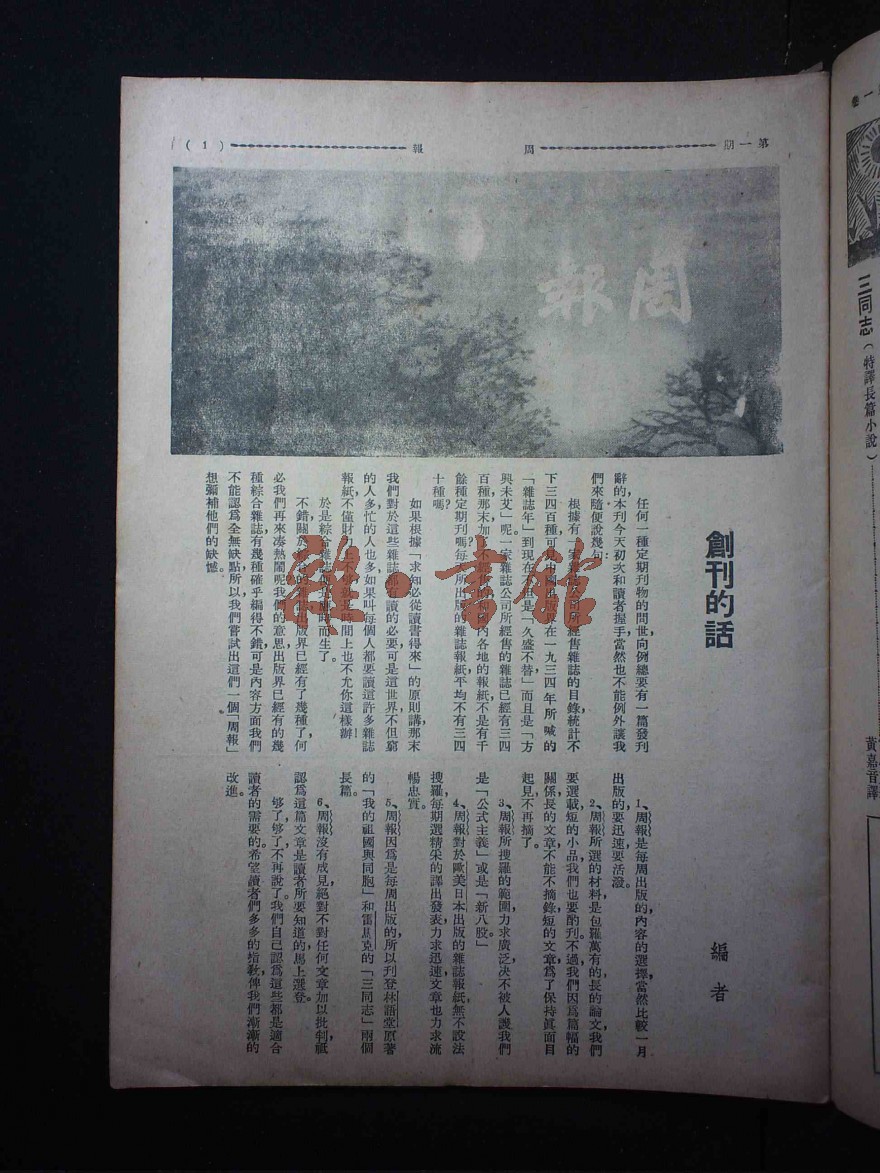 第一期 周報 (1)
周報
創刊的話
編者
任何一種定期刊物的問世,向例總要有一篇發刊
辭的,本刊今天初次和讀者握手,當然也不能例外,讓我
們來隨便說幾句:
根據有一家雜誌公司所經售雜誌的目錄統計,不
下三四百種,可見中國出版界在一九三四年所喊的
「雜誌年」,到現在不但是「久盛不替」,而且是「方
興未艾」呢。一家雜誌公司所經售的雜誌已經有三四
百種,那末加上不經售的和國內各地的報紙,不是有千
餘種定期刊嗎?每天所出版的雜誌報紙,平均不有三四
十種嗎?
如果根據「求知必從讀書得來」的原則講,那末
我們對於這些雜誌都有讀的必要,可是這世界不但窮
的人多,忙的人也多,如果叫每個人都要讀這許多雜誌
報紙,不僅財力上不 就是時間上也不允你這樣辦!
於是綜合雜誌便 而生了。
不錯,關於綜合的雜誌,出版界已經有了幾種了,何
必我們再來湊熱鬧呢?我們的意思,出版界已經有的幾
種綜合雜誌,有幾種確乎編得不錯,可是內容方面我們
不能認爲全無缺點,所以我們嘗試出這們一個「周報」
想彌補他們的缺憾。
1、周報是每周出版的,內容的選擇,當然比較一月
出版的要迅速,要活潑。
2、周報所選的材料,是包羅萬有的,長的論文,我們
要選載,短的小品,我們也要酌刊。不過我們因爲篇幅的
關係,長的文章不能不摘錄,短的文章爲了保持眞面目
起見,不再摘了。
3、周報所搜羅的範圍,力求廣泛,决不被人譏我們
是「公式主義」或是「新八股。」
4、周報對於歐美日本出版的雜誌報紙,無不設法
搜羅,每期選精采的譯出發表,力求迅速,文章也力求流
暢忠實。
5、周報因爲是每周出版的,所以刊登林語堂原著
的「我的祖國與同胞」和雷馬克的「三同志」兩個
長篇。
6、周報沒有成見,絕對不對任何文章加以批判,祗
認爲這篇文章是讀者所要知道的,馬上選登。
够了够了,不再說了。我們自己認爲這些都是適合
讀者的需要的。希望讀者們多多的指教,俾我們漸漸的
改進。
雜·書館
三同志(特譯長篇小說)
黃嘉音譯